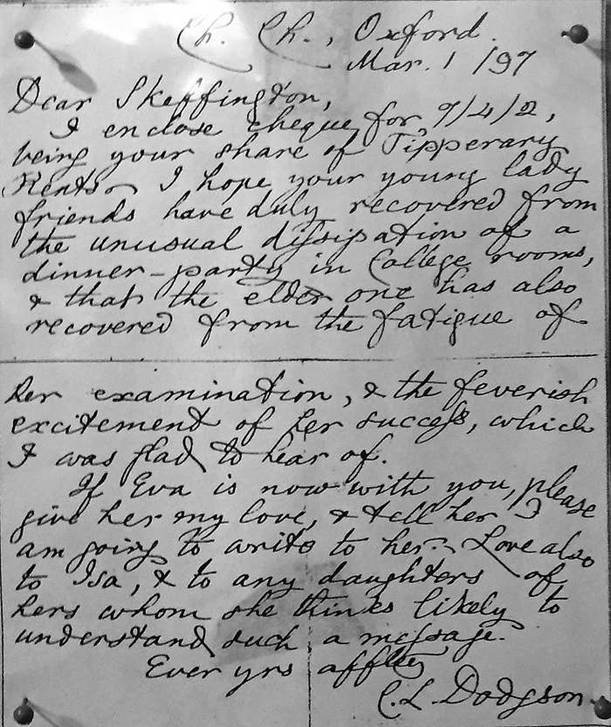 Ch. Ch., Oxford.
Mar. 1 /97
Dear Skeffington,
I enclose cheque for 7/4/2,
being your share of Tipperary
Rents. I hope your young lady
friends have duly recovered from
the unusual dissipation of a
dinner-party in College rooms,
& that the elder one has also
recovered from the fatigue of
her examination, & the feverish
excitement of her success, which
I was glad to hear of.
If Eva is now with you, please
give her my love, & tell her I
am going to write to her. Love also
to Isa, & to any daughters of
hers whom she thinks likely to
understand such a message.
Ever yrs affly
C. L. Dodgson.